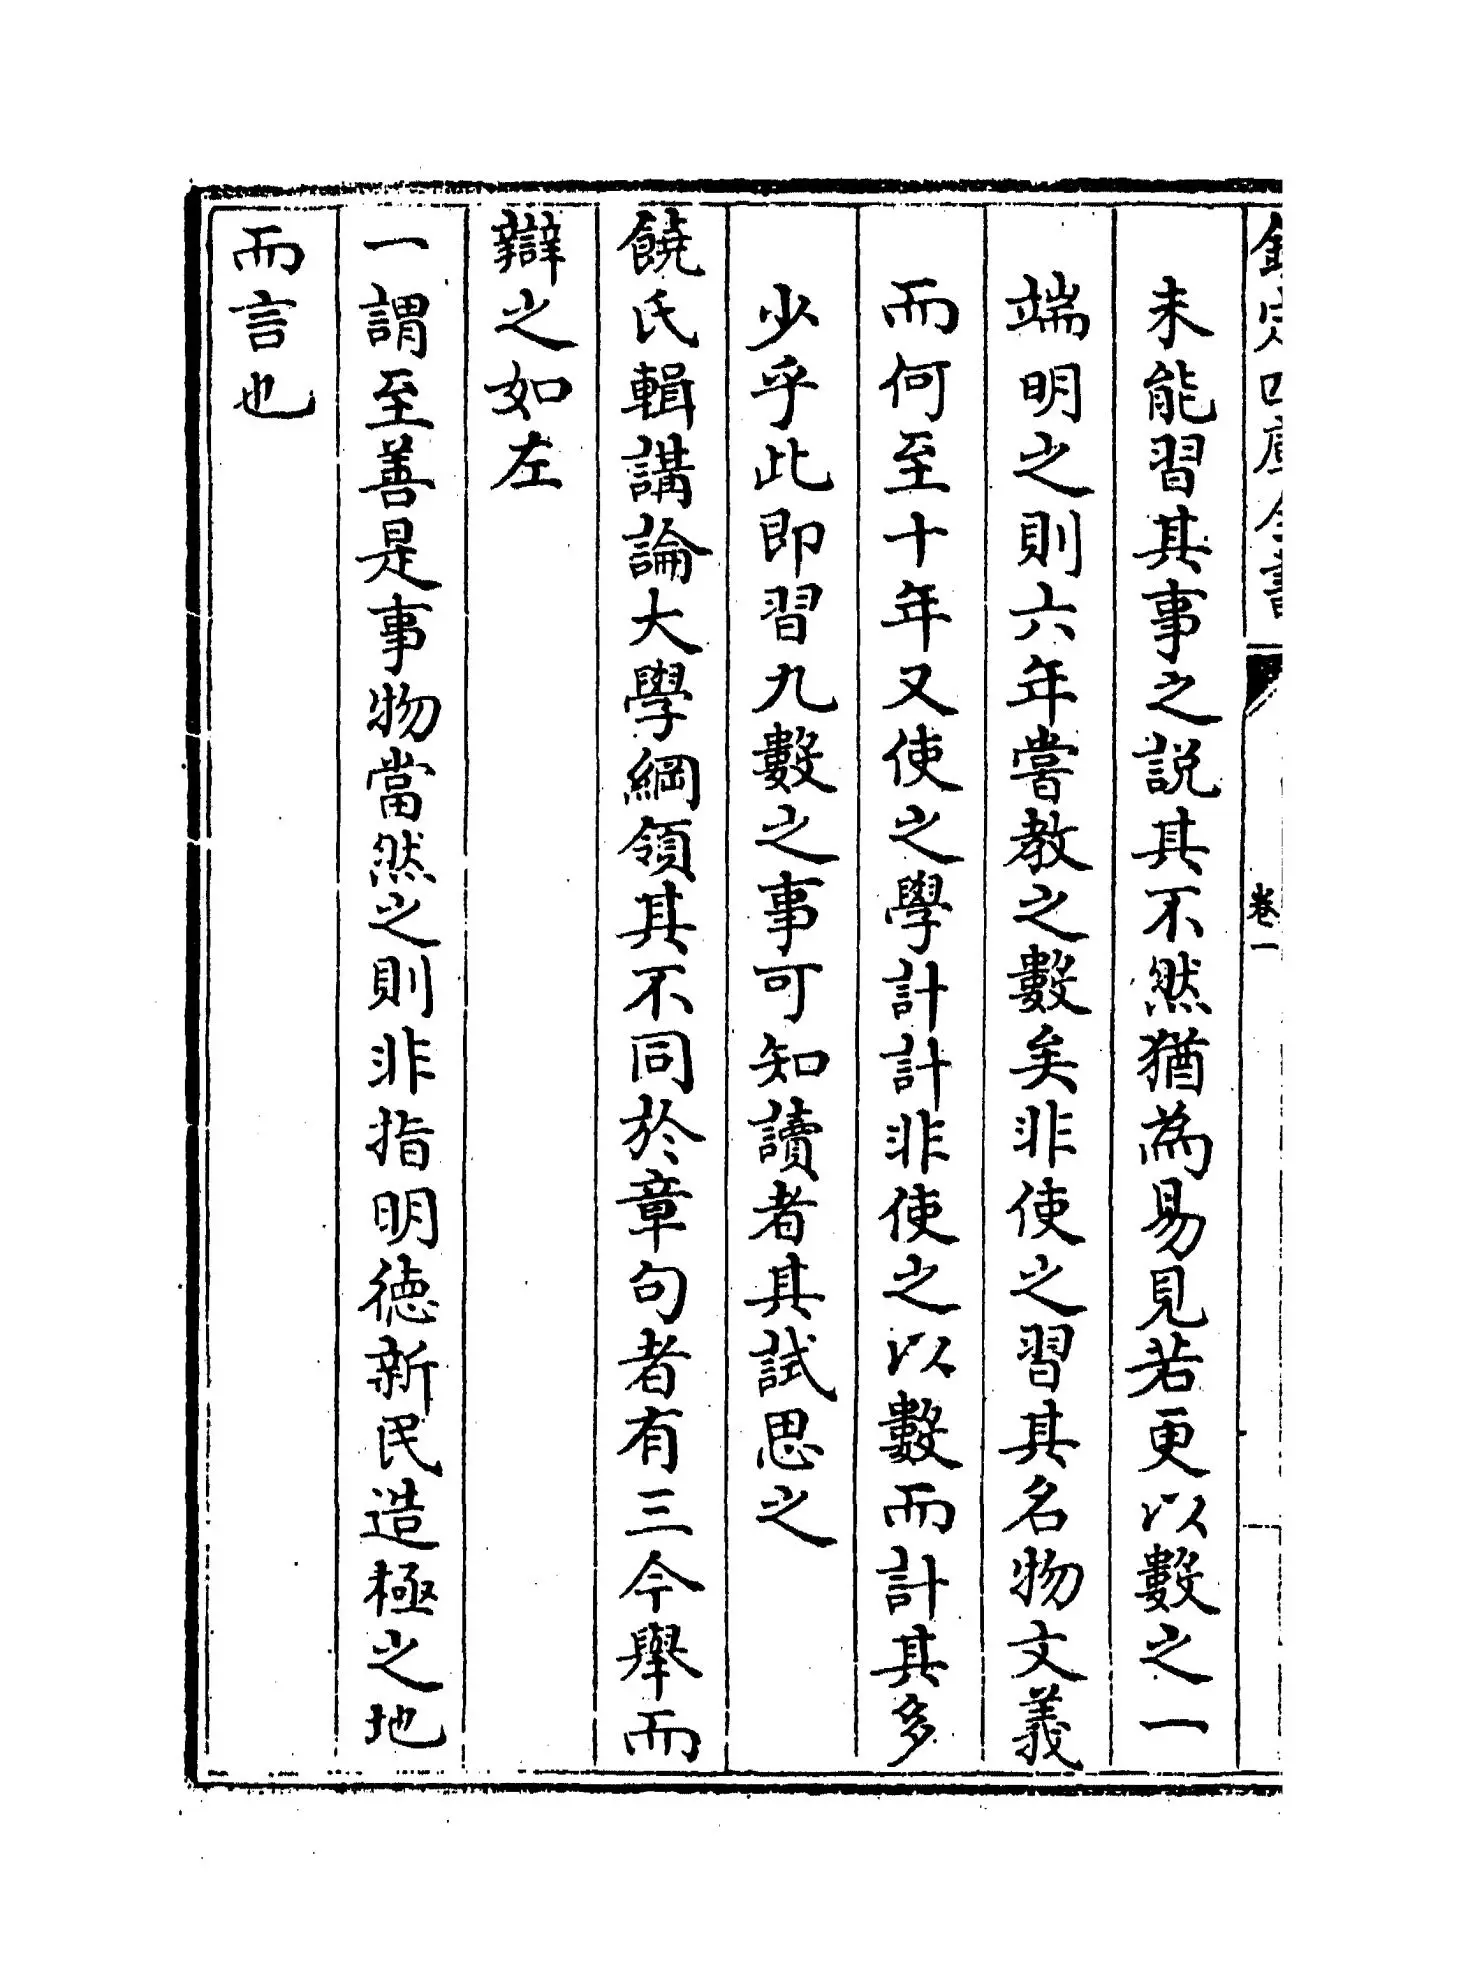 欽定四庫全書
卷一
未能習其事之説其不然猶為易見若更以數之一
端明之則六年嘗教之數矣非使之習其名物文義
而何至十年又使之學計計非使之以數而計其多
少乎此即習九數之事可知讀者其試思之
饒氏輯講論大學綱領其不同於章句者有三今舉而
辯之如左
一謂至善是事物當然之則非指明徳新民造極之地
而言也